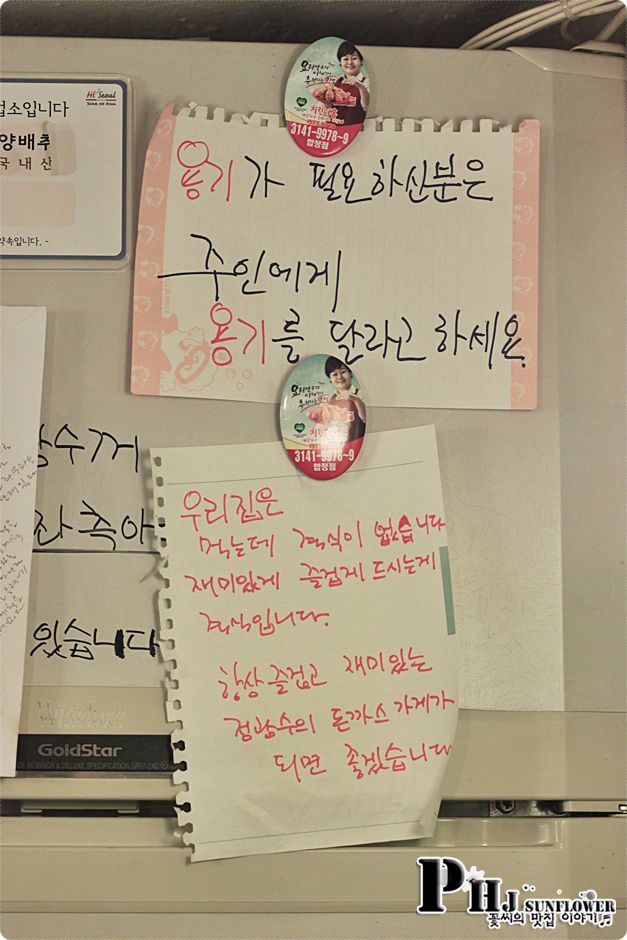 업소입니다
Hi Seoul
SOUL OF ASIA
양배추
국내산
약속입니다. -
3141-9978~9
합정점
용기가 필요하신분은
주인에게
용기를 달라고 하세요.
3141-9978~9
합정점
광수꺼
좌측아
있습니다
우리집은
먹는데 격식이 없습니다
재미있게 즐겁게 드시는게
격식입니다.
항상 즐겁고 재미있는
정광수의 돈까스 가게가
되면 좋겠습니다
GoldStar
INTERIOR & DELUXE SPECIFICATION
PHJ SUNFLOWER
꽃씨의 맛집 이야기